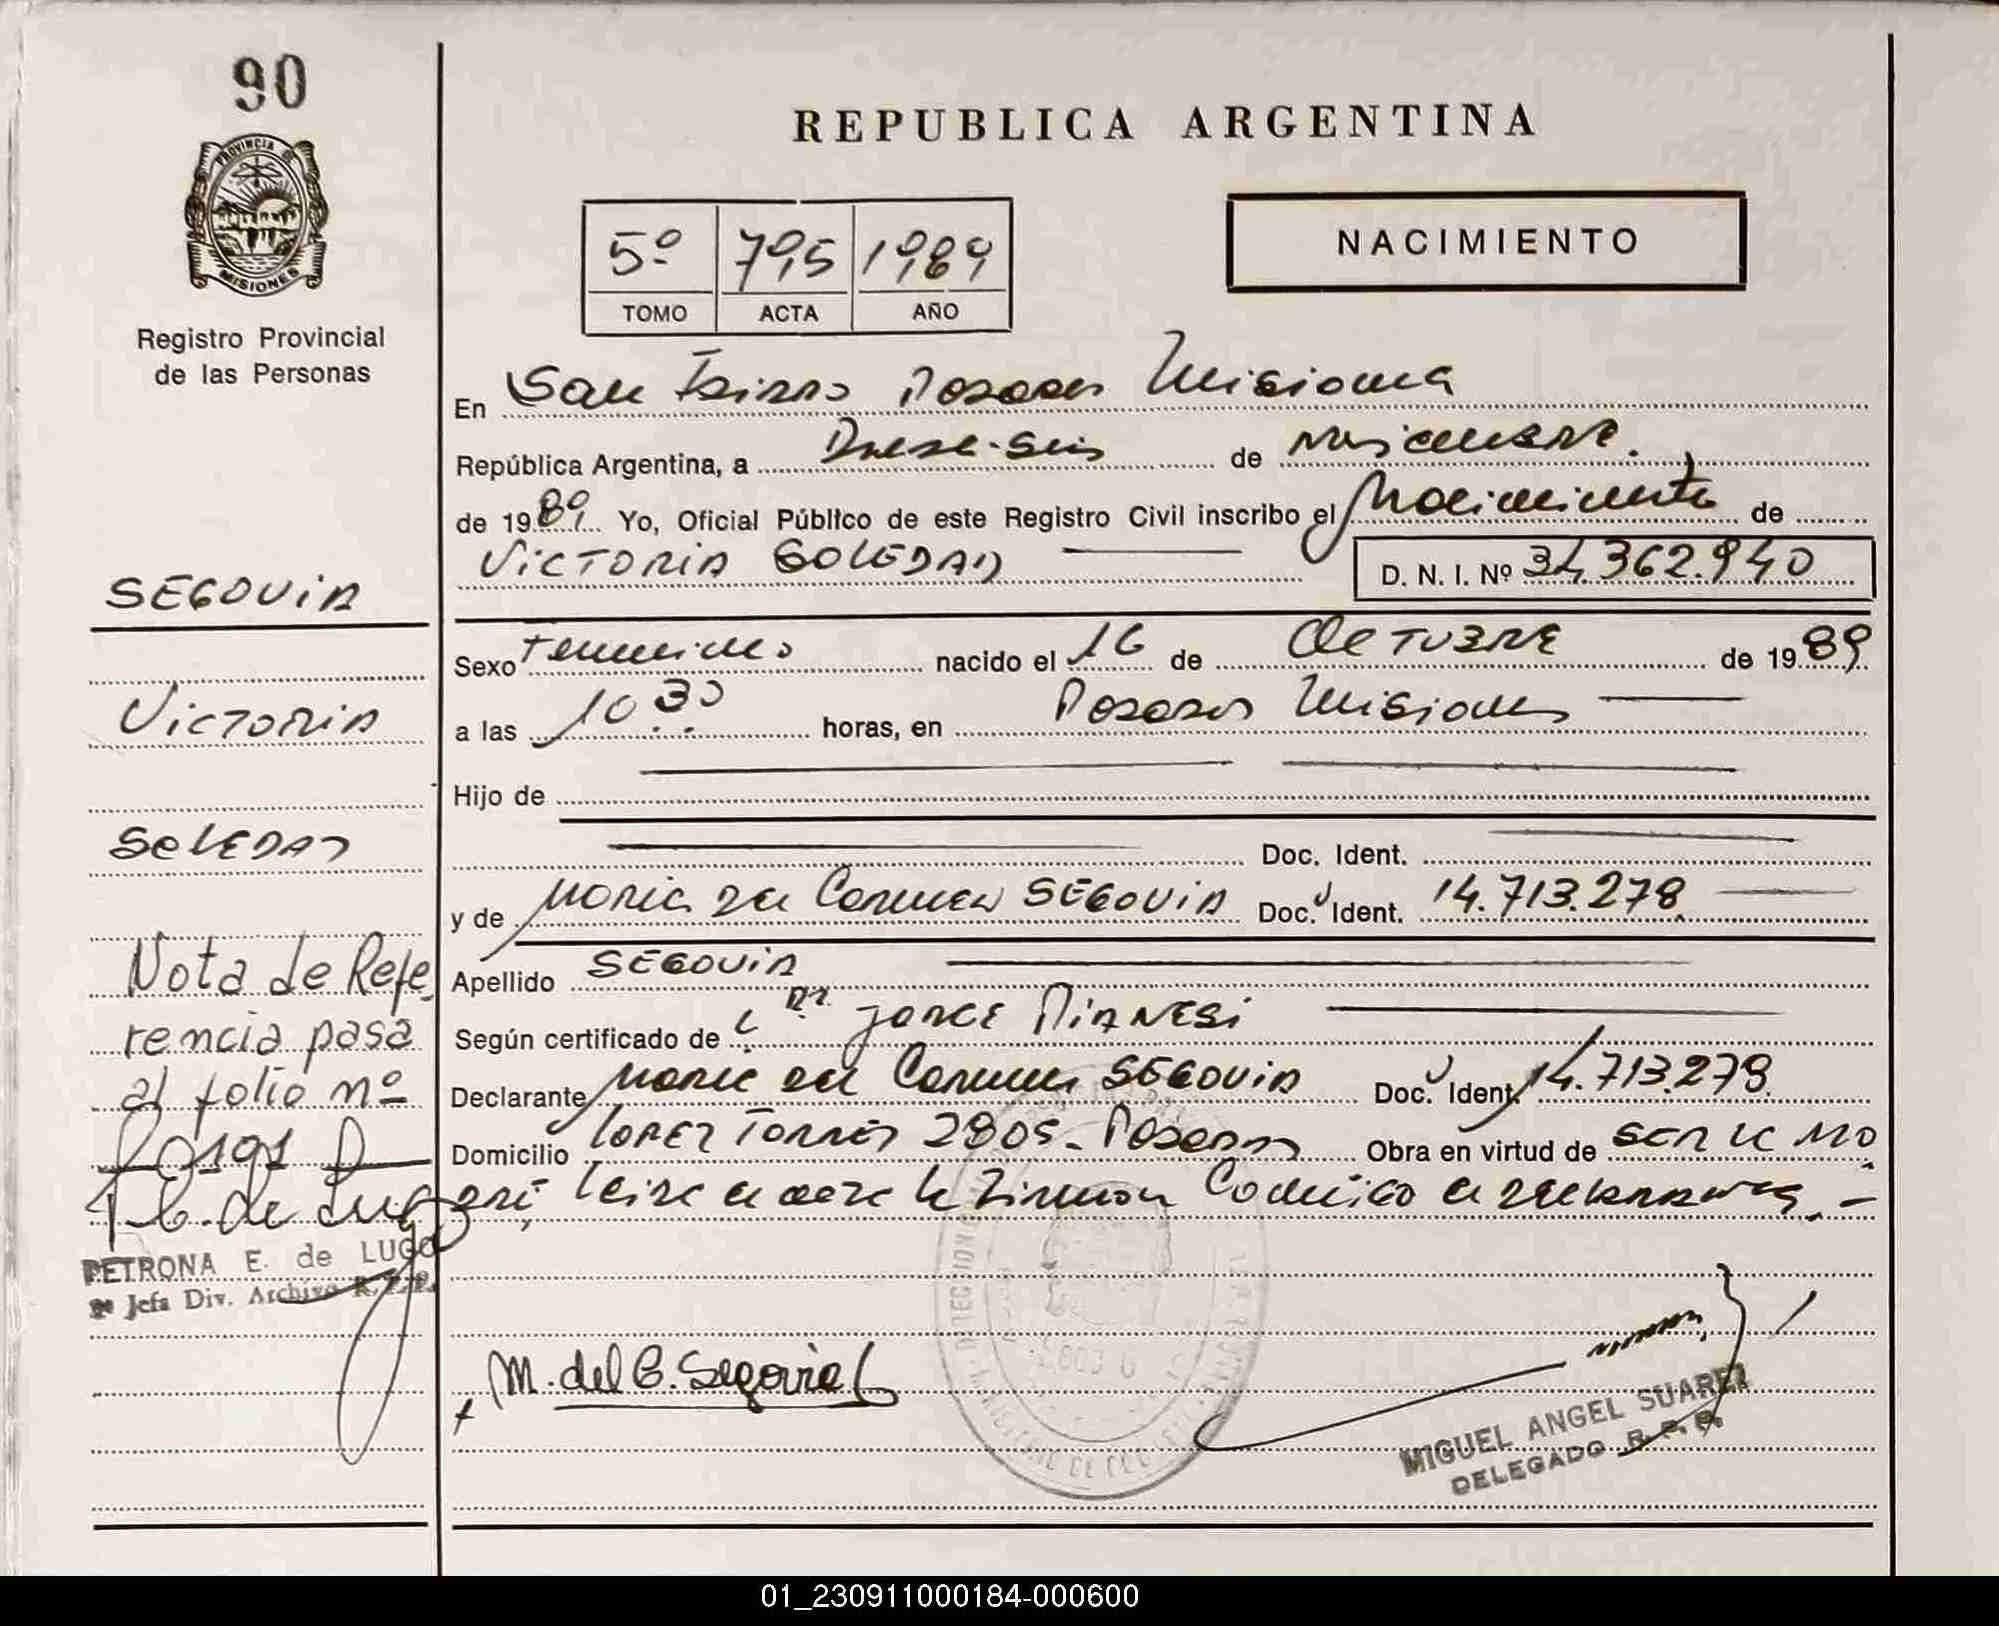 90
REPUBLICA ARGENTINA
PROVINCIA DE
MISIONES
Registro Provincial
de las Personas
5º 795 1989
TOMO ACTA AÑO
NACIMIENTO
En San Isidro Posadas Misiones
República Argentina, a Diese-seis de Noviembre.
de 1989 Yo, Oficial Público de este Registro Civil inscribo el Nacimiento de
VICTORIA SOLEDAD D. N. I. Nº 34.362.940
SEGOVIA
Sexo Femenino nacido el 16 de OCTUBRE de 1989
VICTORIA
a las 10 30 horas, en Posadas Misiones
Hijo de
SOLEDAD
Doc. Ident.
y de MARIA del Carmen SEGOVIA Doc. Ident. 14.713.278
Nota de Refe
rencia pasa
al folio nº
0191
P. E. de Lugo
PETRONA E. de LUGO
Jefa Div. Archivo R. P. P.
Apellido SEGOVIA
Según certificado de Dr. JORGE PIANESI
Declarante MARIA del Carmen SEGOVIA Doc. Ident. 14.713.278.
Domicilio LOPEZ TORRES 2805 - Posadas Obra en virtud de SER LA MA
DRE, Leida el acta la firman conmigo el declarante. -
M. del C. Segovia
MIGUEL ANGEL SUAREZ
DELEGADO R. P. P.
01_230911000184-000600